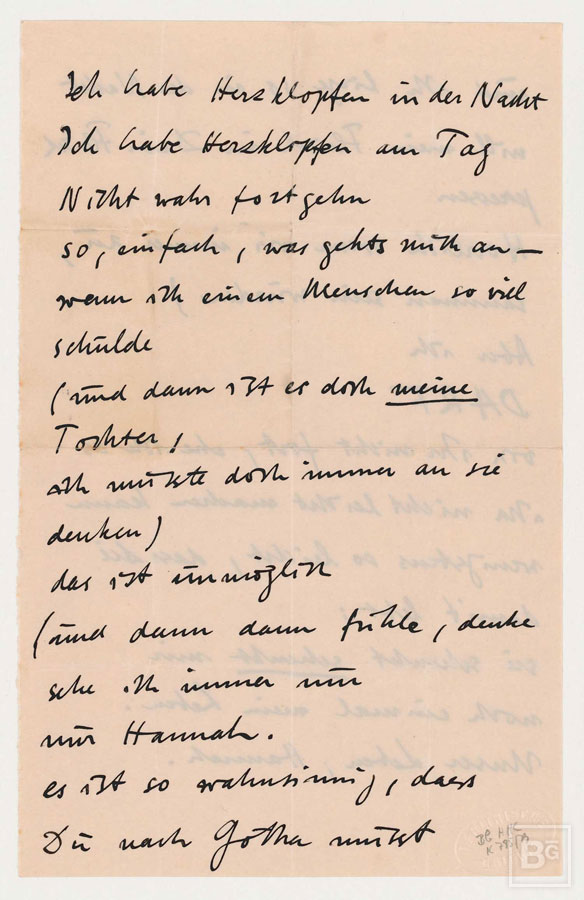 Ich habe Herzklopfen in der Nacht
Ich habe Herzklopfen am Tag
Nicht wahr fortgehn
so, einfach, was gehts mich an –
wenn ich einem Menschen so viel
schulde
(und dann ist es doch meine
Tochter!
ich müsste doch immer an sie
denken)
das ist unmöglich
(und dann dann fühle, denke
sehe ich immer nur
nur Hannah.
es ist so wahnsinnig, dass
Du nach Gotha müsst
BG